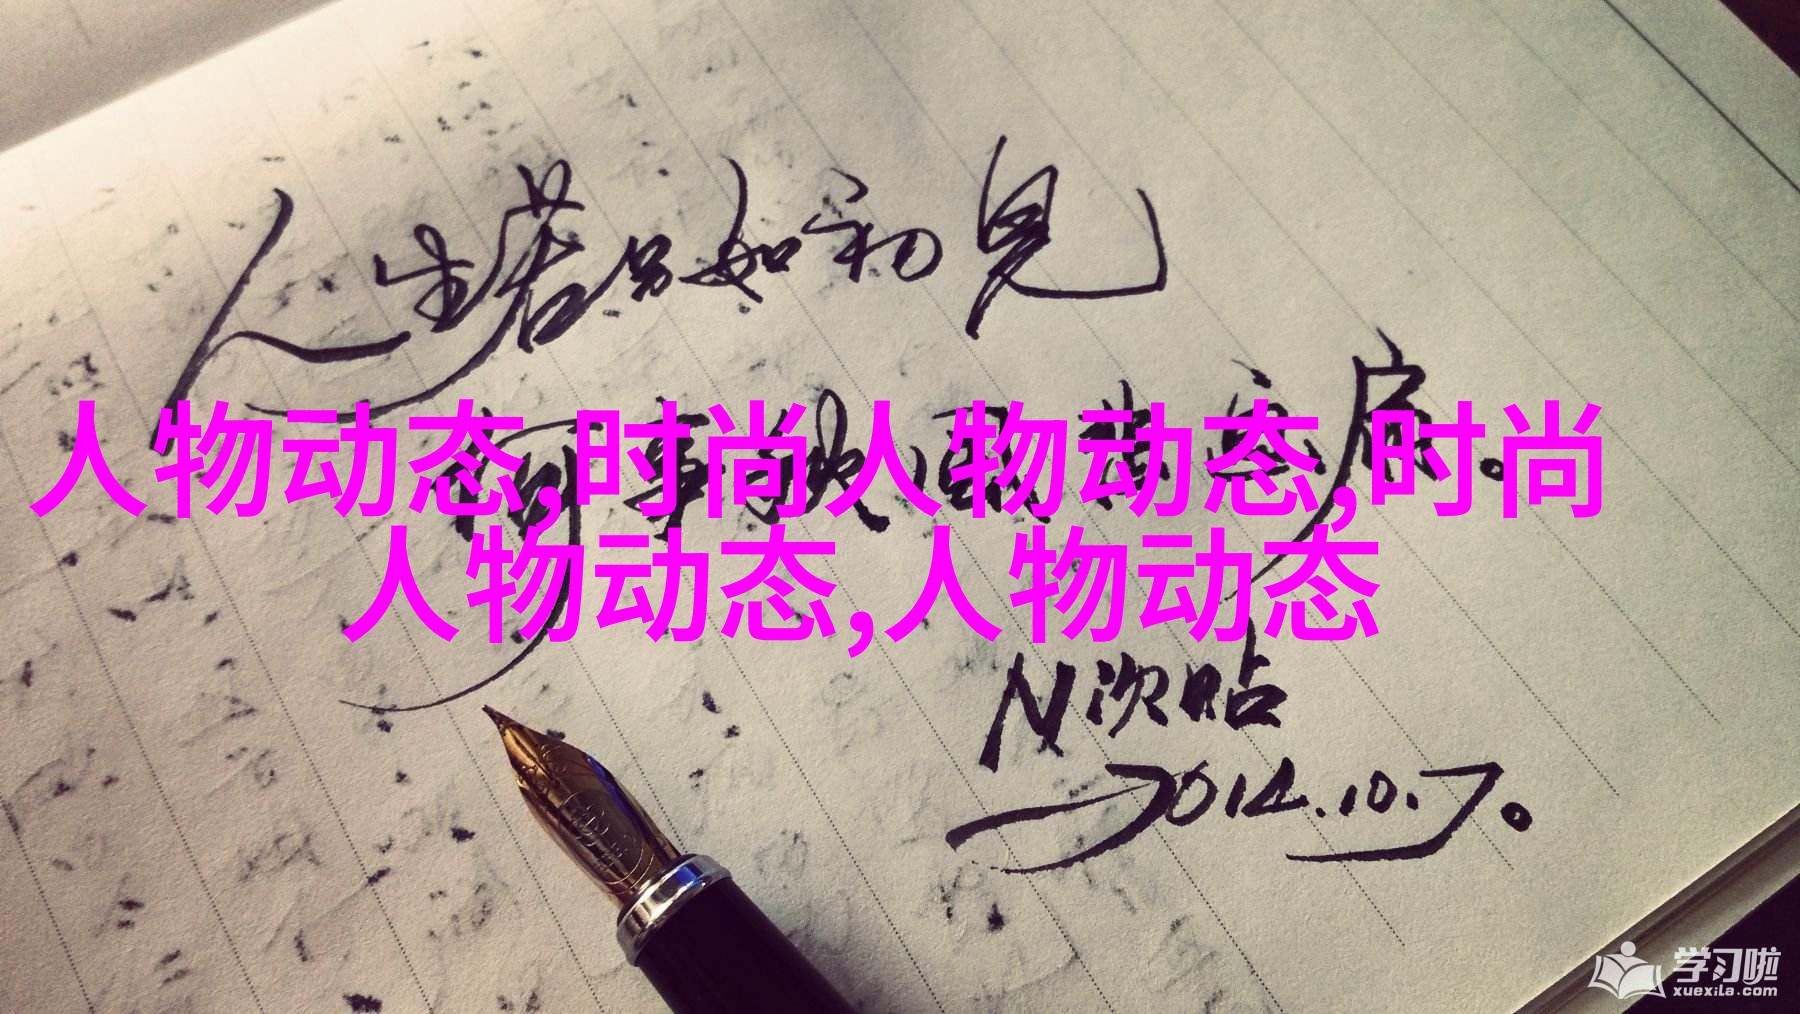 人生若只如初见
何事秋风悲画扇。
人物动态,时尚人物动态,时尚
人物动态,人物动态
N次贴
2014.10.7。
学习啦
xuexila.com